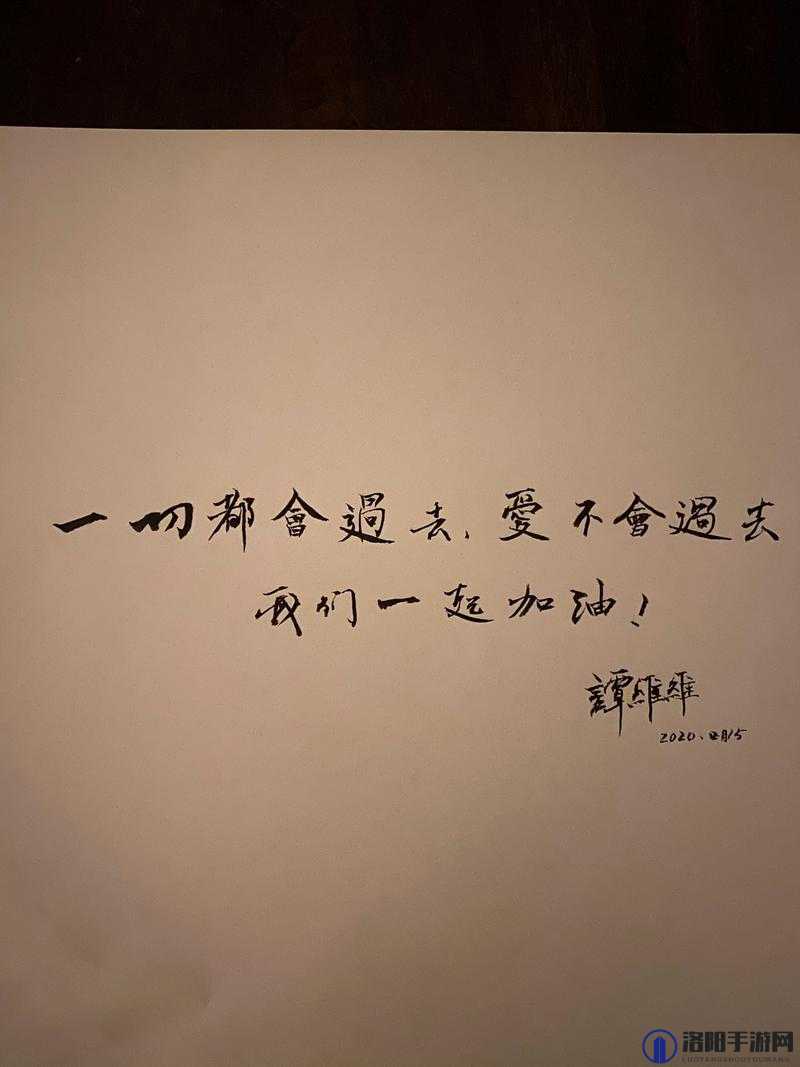 一切都會過去、愛不會過去
我们一起加油！
譚維維
2020、2月15
洛阳手游网
LUOYANGSHOUYOUWANG